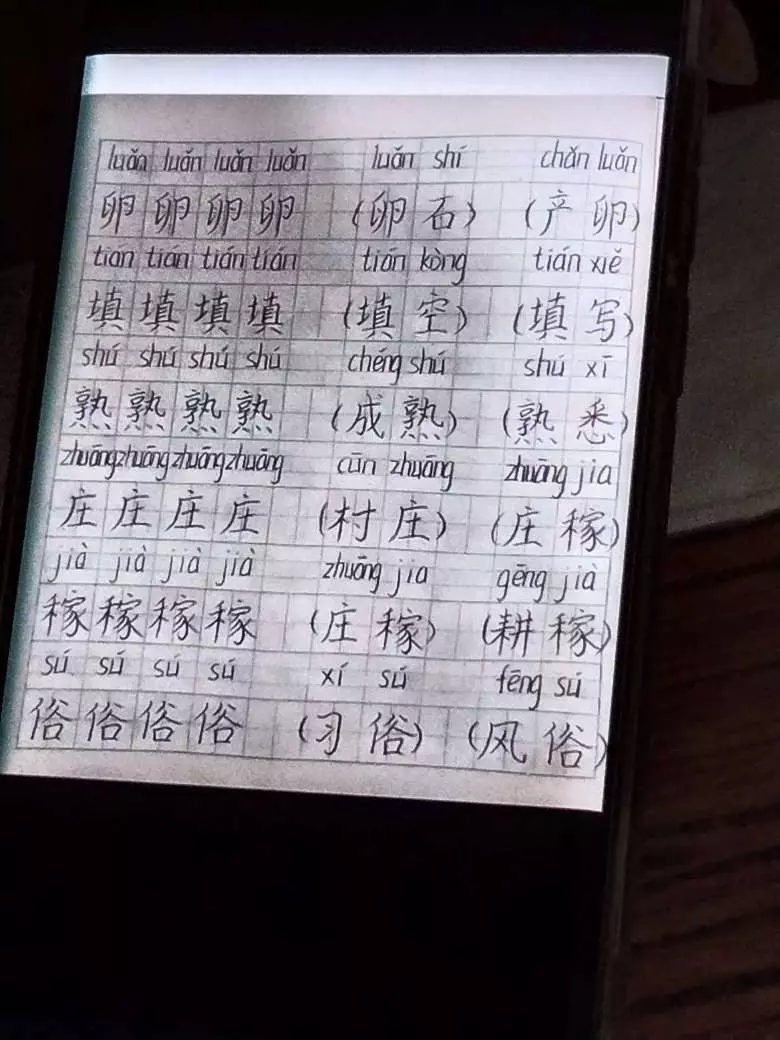 luǎn luǎn luǎn luǎn luǎn shí chǎn luǎn
卵 卵 卵 卵 (卵 石) (产 卵)
tián tián tián tián tián kòng tián xiě
填 填 填 填 (填 空) (填 写)
shú shú shú shú chéng shú shú xī
熟 熟 熟 熟 (成 熟) (熟 悉)
zhuāng zhuāng zhuāng zhuāng cūn zhuāng zhuāng jia
庄 庄 庄 庄 (村 庄) (庄 稼)
jià jià jià jià zhuāng jia gēng jià
稼 稼 稼 稼 (庄 稼) (耕 稼)
sú sú sú sú xí sú fēng sú
俗 俗 俗 俗 (习 俗) (风 俗)